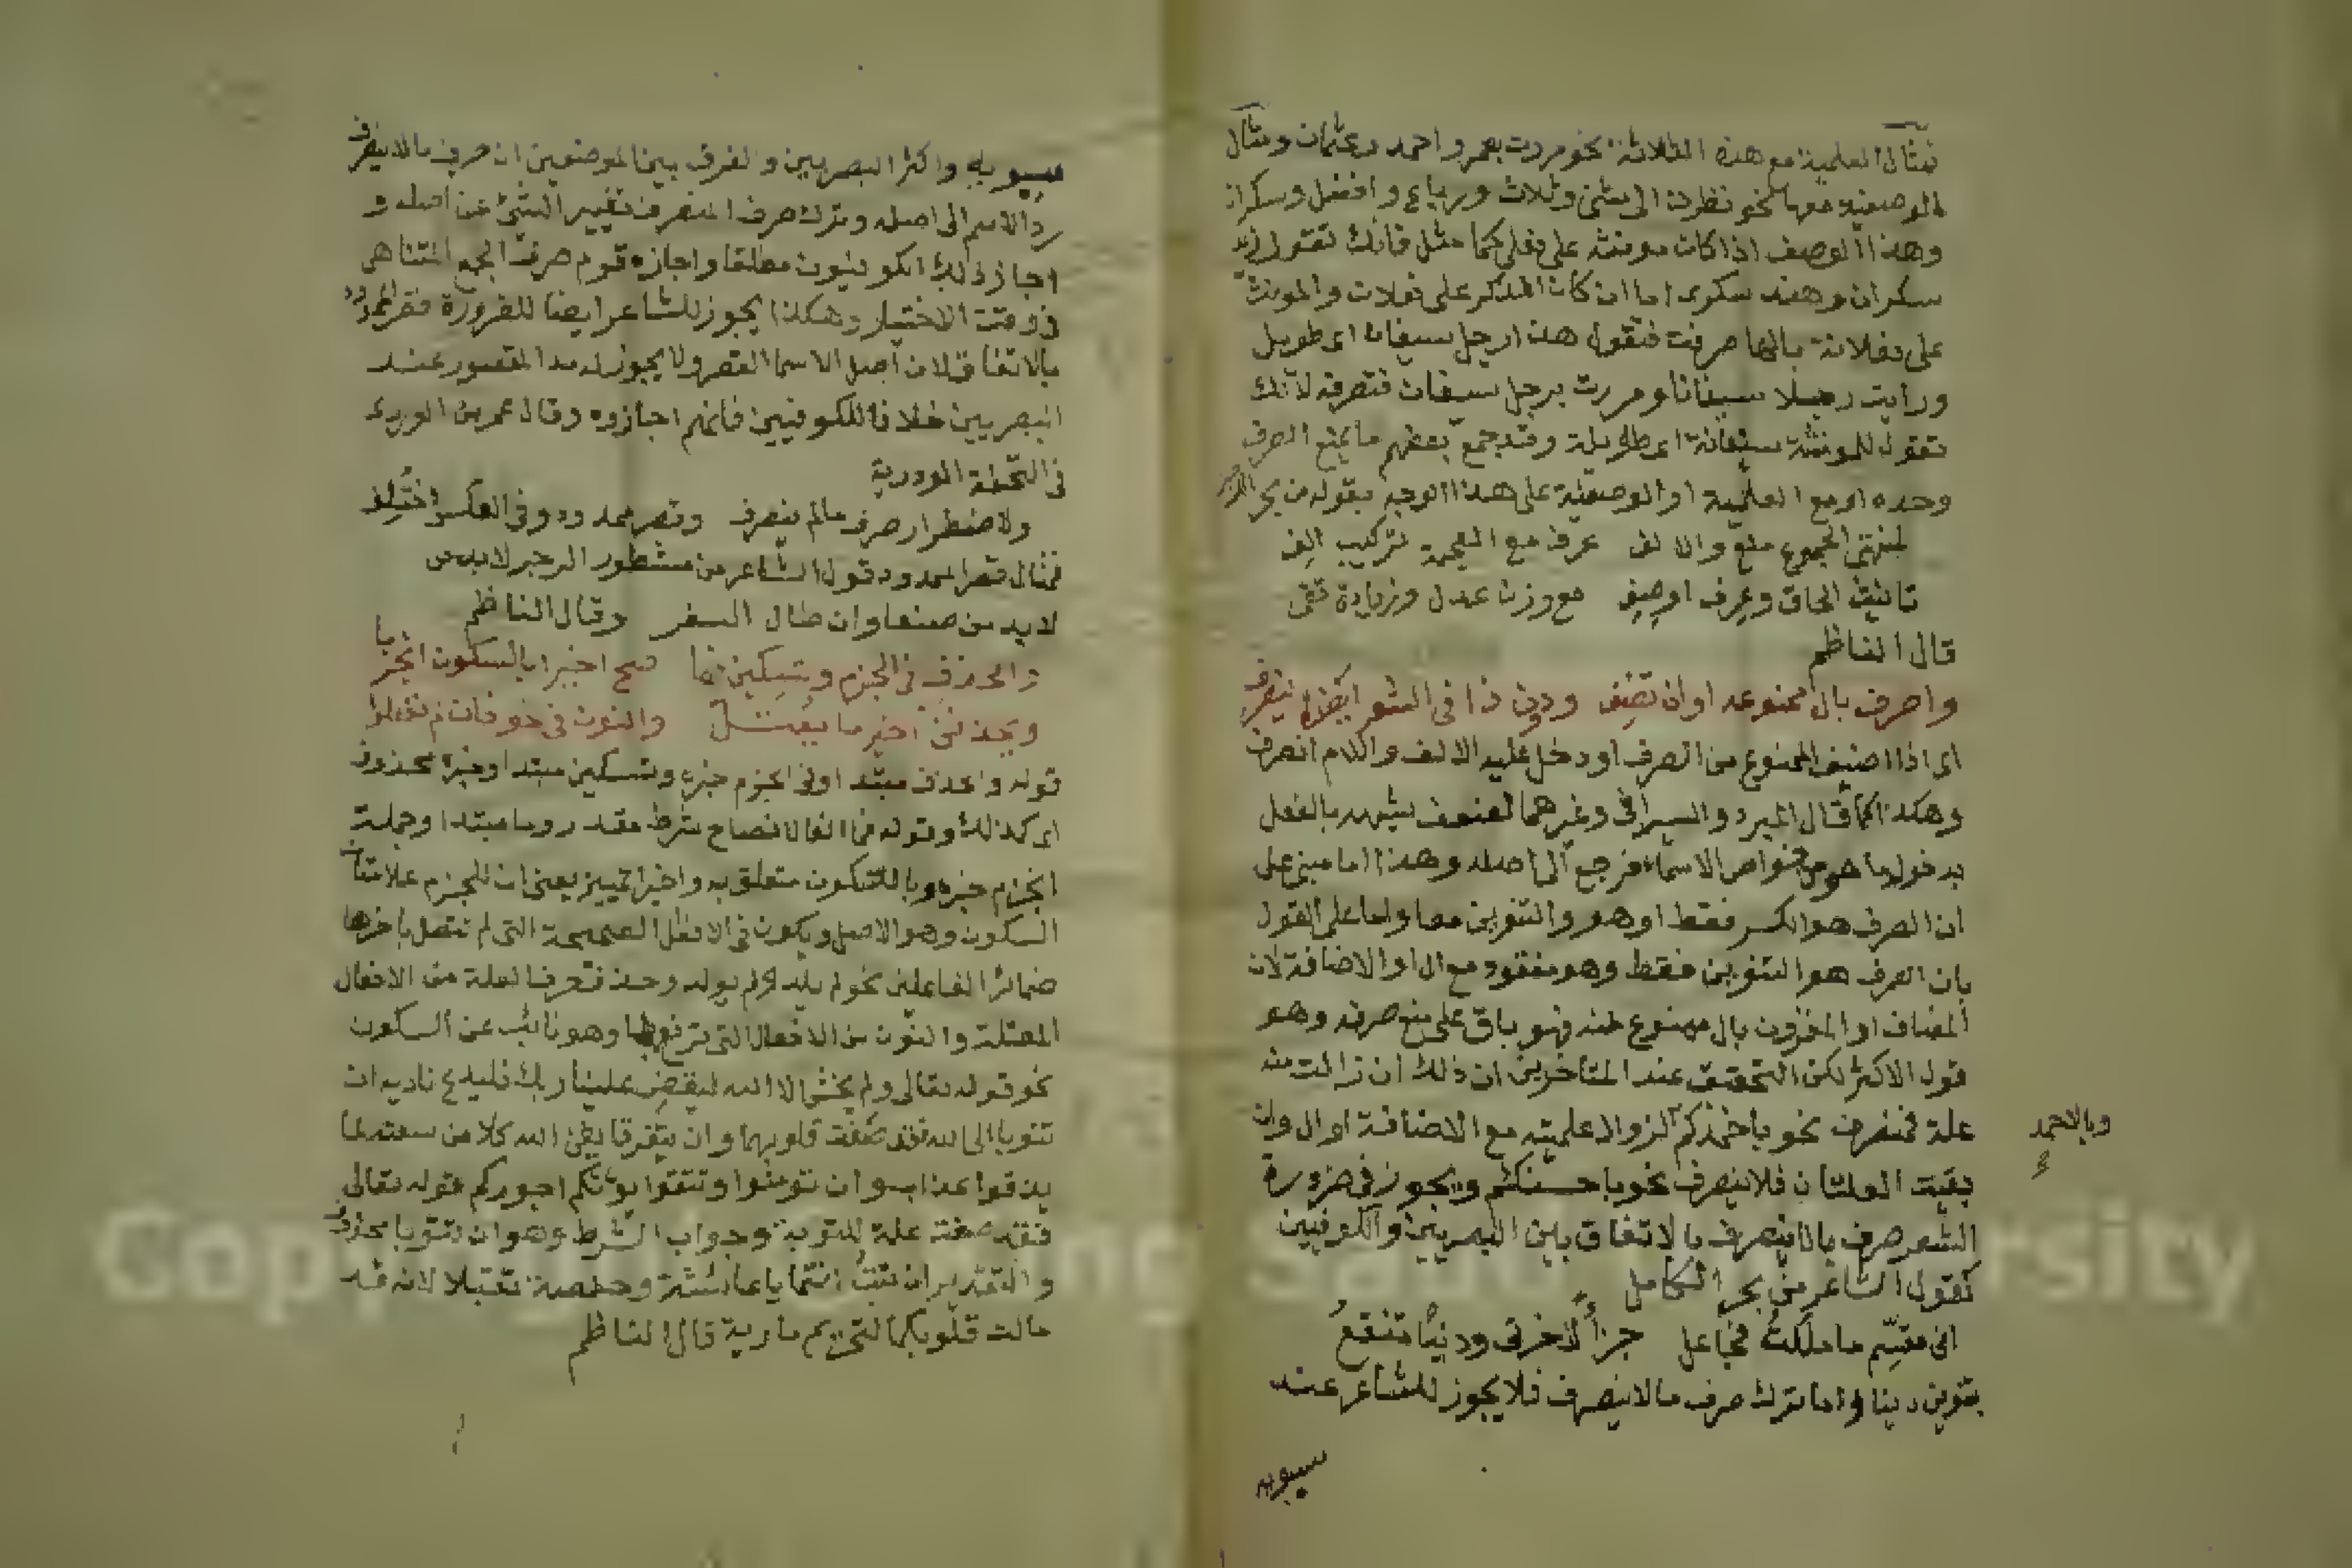 فمثال العلمية مع هذه الثلاثة نحو مررت بعمر واحمد وعثمان ومثال
الوصفية معها نحو نظرت الى مثنى وثلاث ورباع وافضل وسكران
وهذا الوصف اذا كان مونثه على فعلى كما مثل فانك تقول زيد
سكران وهند سكرى اما ان كان المذكر على فعلان والمونث
على فعلانة بالها صرفت فتقول هذا رجل سيفان اى طويل
ورايت رجلا سيفانا ومررت برجل سيفان فتصرفه لانك
تقول للمونثة سيفانة اى طويلة وقد جمع بعضهم ما يمنع الصرف
وحده او مع العلمية او الوصفية على هذا الوجه بقوله من بحر الرجز
لمنتهى الجموع منع والالف عرف مع العجمة تركيب الف
تانيث الحاق وعرف او صف مع وزن عدل وزيادة تفى
قال الناظم
واصرف بال ممنوعه او ان تضف ودون ذا فى الشعر ايضا ينصرف
اى اذا اضيف الممنوع من الصرف او دخل عليه الالف واللام انصرف
وهكذا كما قال المبرد والسيرافى وغيرهما لضعف شبهه بالفعل
بدخول ما هو من خواص الاسماء فرجع الى اصله وهذا اما مبنى على
ان الصرف هو الكسر فقط او هو والتنوين معا واما على القول
بان الصرف هو التنوين فقط وهو مفقود مع ال او الاضافة لان
المضاف او المقرون بال ممنوع منه فهو باق على منع صرفه وهو
قول الاكثر لكن التحقيق عند المتاخرين ان ذلك ان زالت منه
علة فمنصرف نحو باحمدكم لزوال علميته مع الاضافة او ال وان
وبالاحمد
بقيت العلتان فلا ينصرف نحو باحسنكم ويجوز فى ضرورة
الشعر صرف ما لا ينصرف بالاتفاق بين البصريين والكوفيين
كقول الشاعر من بحر الكامل
انى مقسم ما ملكت فجاعل جزأ لاخرتى ودنيا تنفع
بتنوين دنيا واما ترك صرف ما لا ينصرف فلا يجوز للشاعر عند
سيبويه
سيبويه واكثر البصريين والفرق بين الموضعين ان صرف ما لا ينصرف
رد الاسم الى اصله وترك صرف المنصرف تغيير الشئ عن اصله و
اجاز ذلك الكوفيون مطلقا واجازه قوم صرف الجمع المتناهى
فى وقت الاختيار وهكذا يجوز للشاعر ايضا للضرورة قصر الممدود
بالاتفاق لان اصل الاسما القصر ولا يجوز له مد المقصور عند
البصريين خلافا للكوفيين فانهم اجازوه وقال عمر بن الوردى
فى التحفة الوردية
ولاضطرار صرف ما لم ينصرف وقصر ممدود وفى العكس اختلف
فمثال قصر الممدود قول الشاعر من مشطور الرجز
لا بد من صنعا وان طال السفر وقال الناظم
والحذف فى الجزم وتسكين فما صح اخيرا بالسكون انجزما
ويحذفن اخير ما يعتل والنون فى نحو
قوله والحذف مبتدا وفى الجزم خبره وتسكين مبتدا وخبره محذوف
اى كذلك وقوله فما الفا لافصاح شرط مقدر وما مبتدا وجملة
انجزم خبره وبالسكون متعلق به واخيرا تمييز يعنى ان للجزم علامتان
السكون وهو الاصل ويكون فى الافعال الصحيحة التى لم تتصل باخرها
ضمائر الفاعلين نحو لم يلد ولم يولد وحذف حرف العلة من الافعال
المعتلة والنون من الافعال التى ترفع بها وهو نائب عن السكون
نحو قوله تعالى ولم يخش الا الله ليقض علينا ربك فليدع ناديه ان
تتوبا الى الله فقد صغت قلوبكما وان يتفرقا يغن الله كلا من سعته لما
يذوقوا عذاب وان تومنوا وتتقوا يوتكم اجوركم قوله تعالى
فقد صغت علة للتوبة وجواب الشرط وهو ان تتوبا محذوف
والتقدير ان تتب انتما يا عائشة وحفصة تقبلا لانه قد
مالت قلوبكما لتحريم مارية قال الناظم